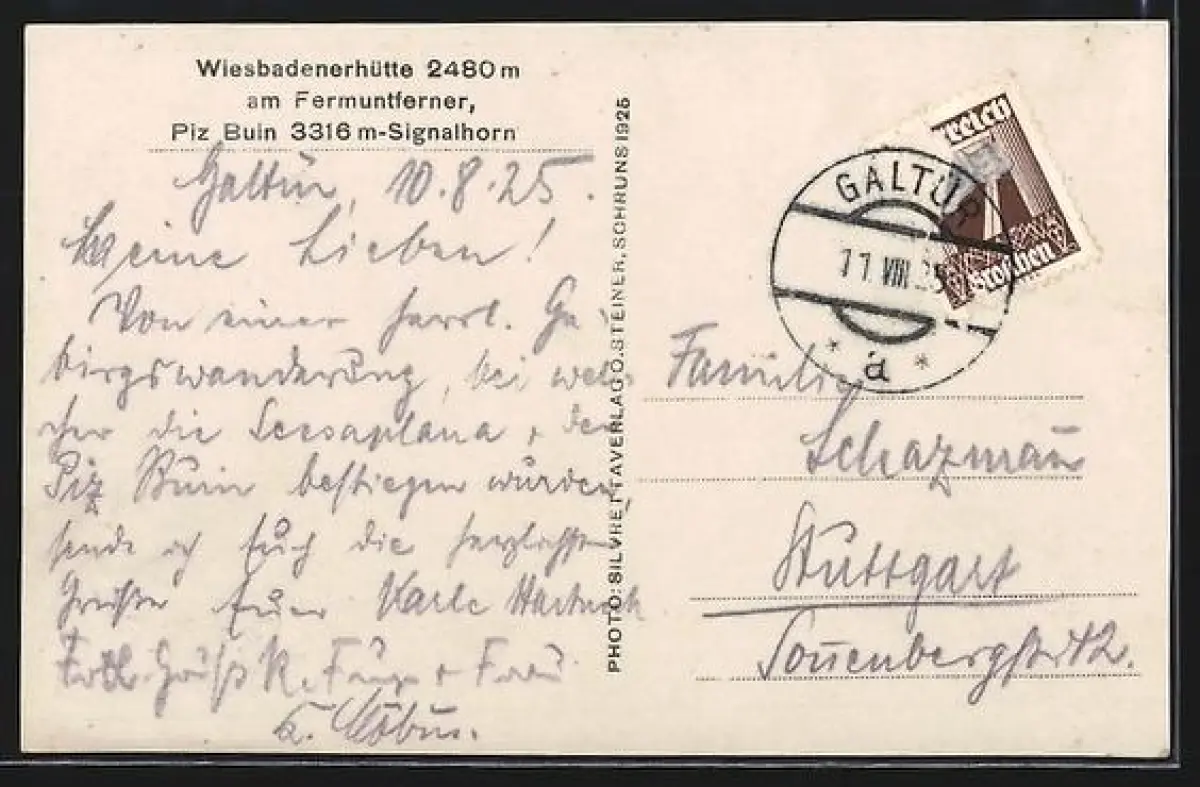 Wiesbadenerhütte 2480 m
am Fermuntferner,
Piz Buin 3316 m-Signalhorn
Galtür, 10.8.25.
Meine Lieben!
Von einer herrl. Ge-
birgswanderung, bei wel-
cher die Scesaplana + der
Piz Buin bestiegen wurden,
sende ich Euch die herzlichsten
Grüße Euer Karle
Frdl. Grüße + Frau
PHOTO: SILVRETTAVERLAG O. STEINER, SCHRUNS 1925
reich
Groschen
GALTÜR
11. VIII. 25
* a *
Familie
Schazmañ
Stuttgart
Soñenbergstr.